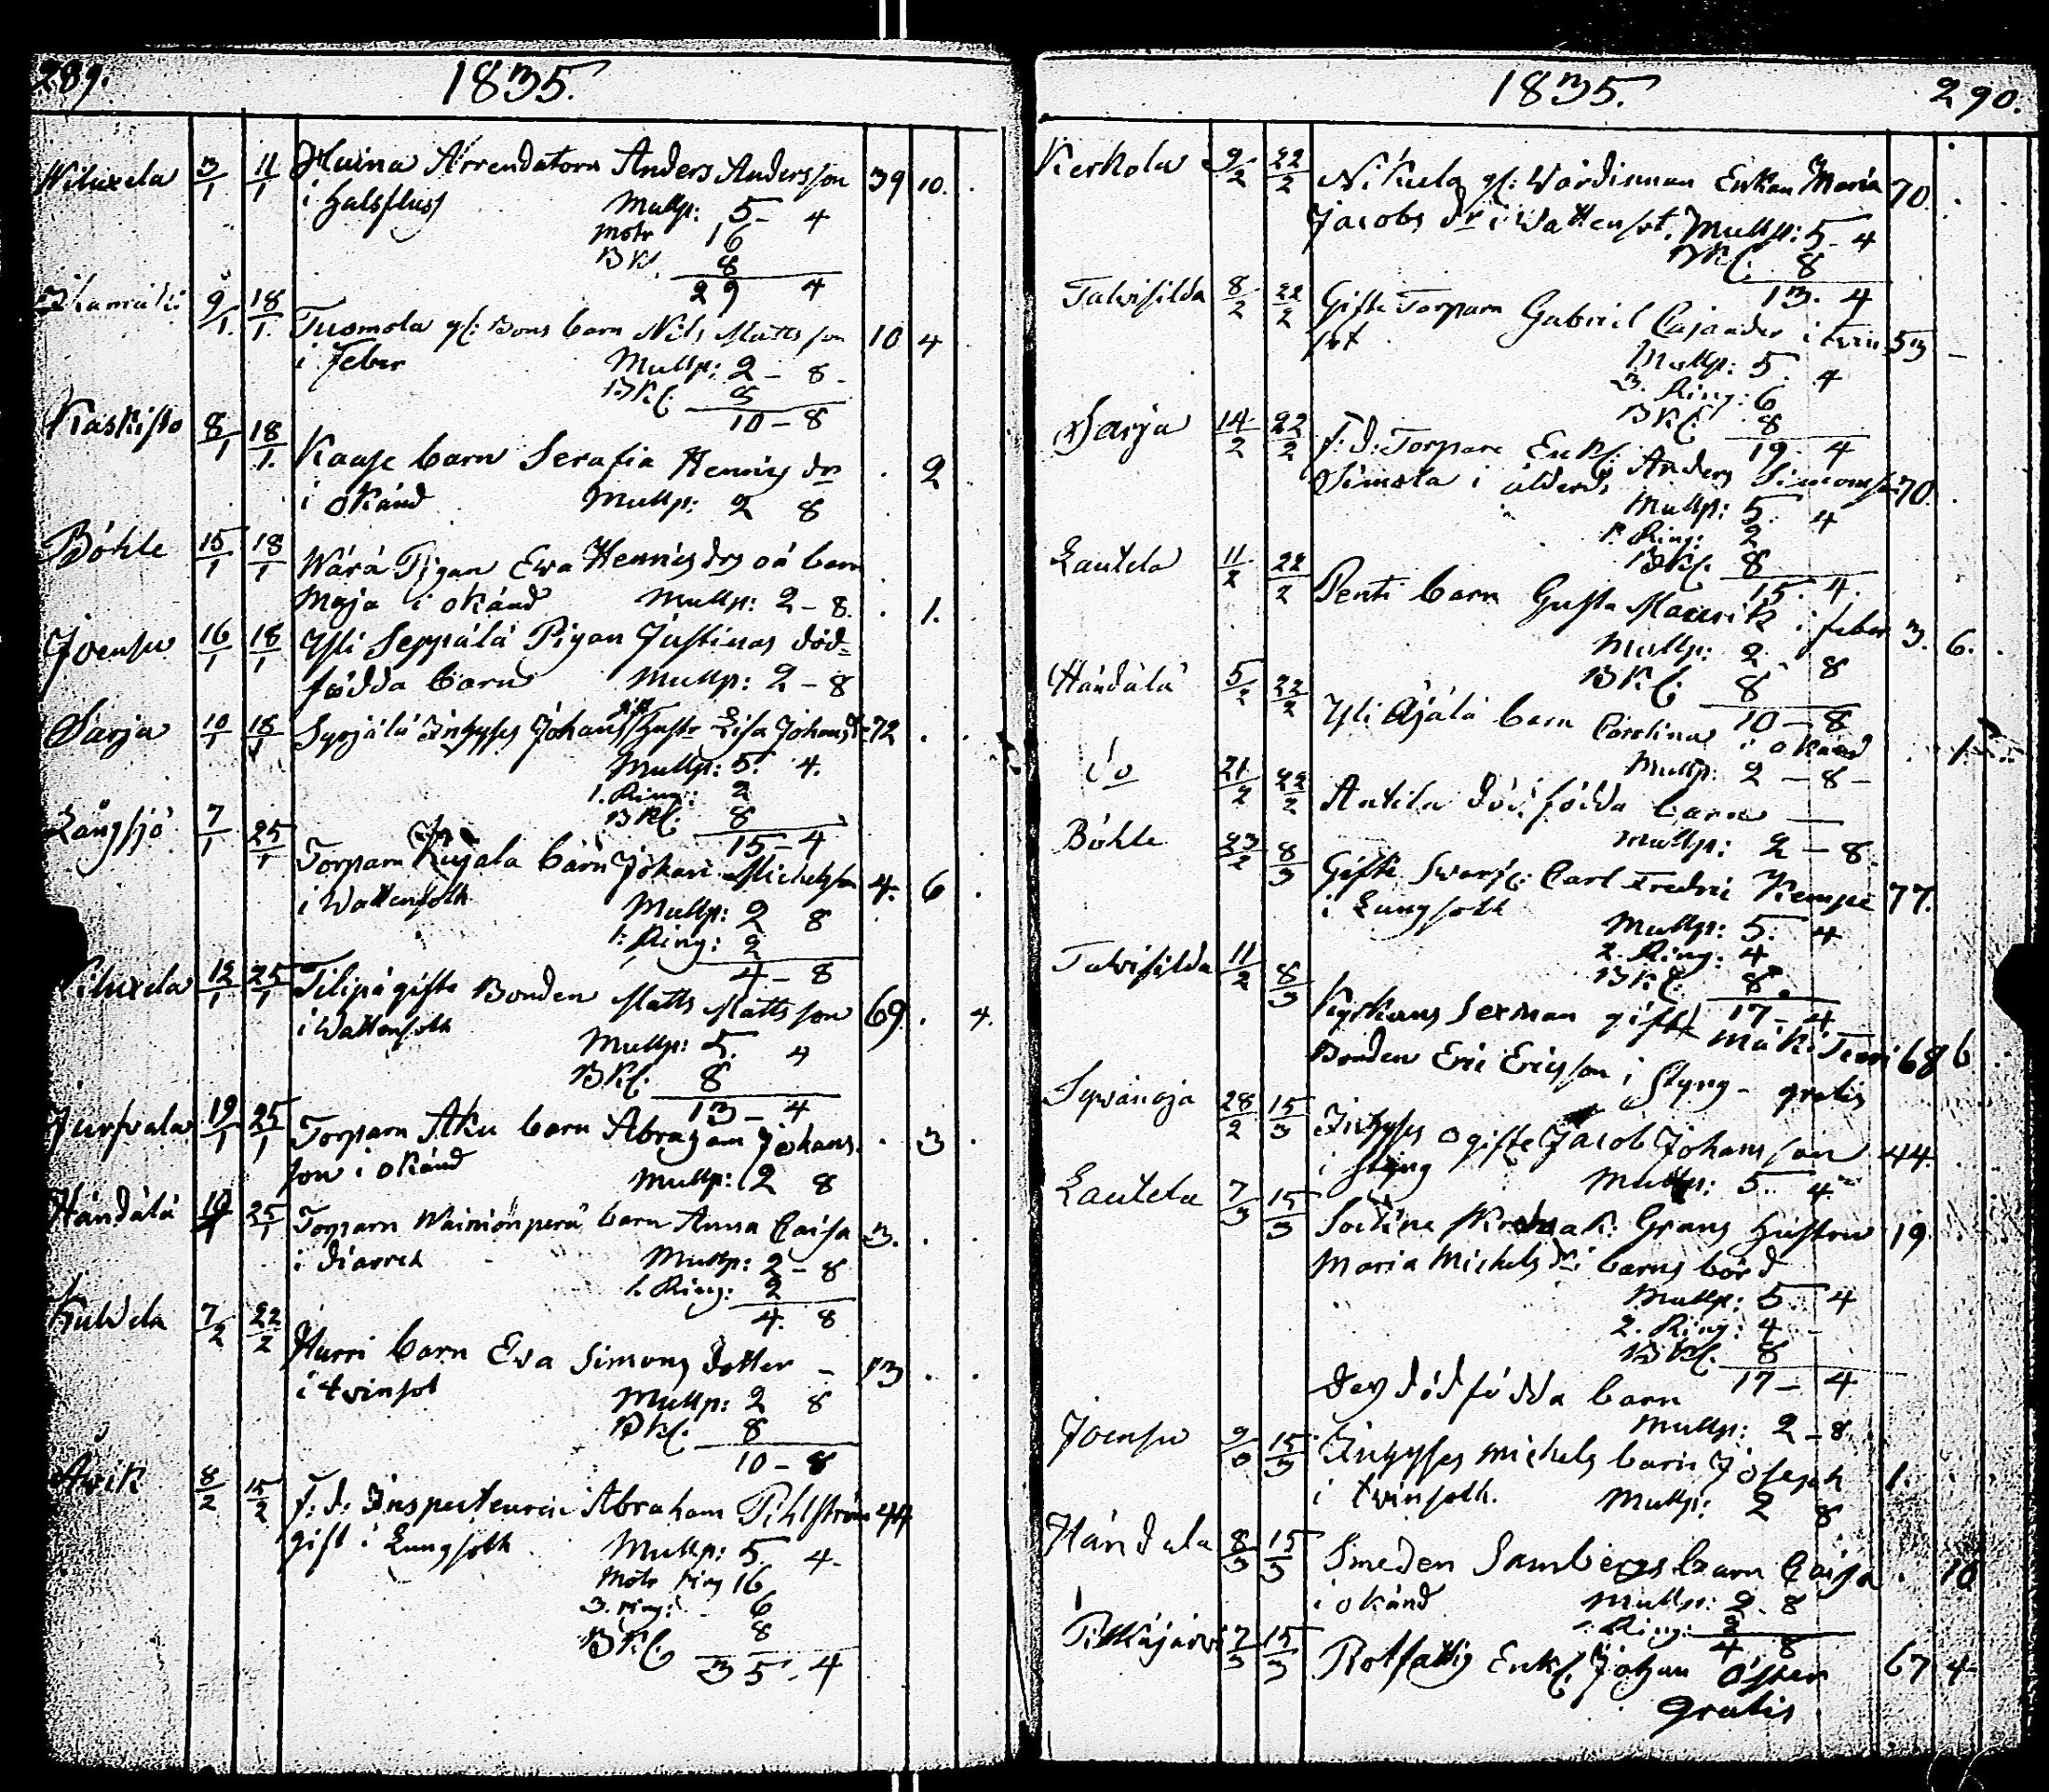 289. 1835.
Wiluxela 3/1 11/1 Huina Arrendatorn Anders Andersson 39 10.
i halsfluss Mullp: 5 - 4
Motr 16
BKl. 8
29 4
9/1. 18/1. Tuomola gl: Bons barn Nils Matts son 10 4
i Feber Mullp: 2 - 8 -
BKl. 8
10 - 8
Kaskisto 8/1 18/1. Kause barn Serafia Henrics dr . 2
i okänd Mullp: 2 8
Böhle 15/1 18/1 Wärä Pigan Ewa Henricsdrs oä barn
Maja i okänd Mullp: 2 - 8. . 1.
Joensu 16/1 18/1 Yli Seppälä Pigan Justinas död=
födda barn Mullp: 2 - 8
Särja 10/1 18/1 Syrjälä Inhyses Johans gift Hustr Lisa Johansdr 72 . .
Mullp: 5. 4.
1. Ring: 2
BKl. 8
15 - 4
Långsjö 7/1 25/1 Torparn Kujala barn Johan Michelsson 4. 6 .
i Wattensoth Mullp: 2 8
1: Ring: 2
4 - 8
Wiluxela 12/1 25/1 Filipä gifte Bonden Matts Matts son 69. . 4.
i Wattensoth
Mullp: 5. 4
BKl. 8
13 - 4
19/1 25/1 Torparn Aku barn Abraham Johans . 3 .
son i okänd Mullp: 2 8
Händälä 25/1 Torparn Wäiniönperä barn Anna Caisa 3. . .
i diarreh Mullp: 2 - 8
1. Ring: 2
4. 8
7/2 22/2 Harri barn Eva Simons dotter - 13 . .
i twinsot Mullp: 2 8
BKl. 8
10 - 8
Åvik 8/2 15/2 F: d: Inspecteuren Abraham Pihlström 44
gift i Lungsoth Mullp: 5. 4 -
Motr ring 16
3. ring: 6
BKl. 8
35. 4
1835. 290.
Kerkola 9/2 22/2 Nikula gl: Wärdisman Enkan Maria 70. .
Jacobs dr i Wattensot. Mullp: 5 - 4
BKl. 8
13. 4
Talvisilda 8/2 22/2 Gifte Torparn Gabriel Cajander i twin 53 -
sot Mullp: 5. 4
3. Ring: 6
BKl. 8
19. 4
Sarja 14/2 22/2 F: d: Torpare Enkl: Anders Simonss. 70.
Simola i ålderd: Mullp: 5. 4
1. Ring: 2
BKl. 8
15. 4.
Lautela 11/2 22/2 Penti barn Gusta Maurik i feber 3. 6. .
Mullp: 2. 8
BKl. 8
10 - 8
Händälä 5/2 22/2 Yli Äijälä barn Carolina i okänd . 1
Mullp: 2 - 8 -
do 21/2 22/2 Antila död födda barn —
Mullp: 2 - 8.
Böhle 23/2 8/3 Gifte Swarf: Carl Fredric Kempe 77.
i Lungsoth Mullp: 5. 4
2. Ring: 4
BKl. 8.
17 - 4
Talvisilda 11/2 8/3 Kyrkans Sexman gift Mäki Tenri 68 6
Bonden Eric Ericsson i Styng - gratis
28/2 15/3 Inhyses ogifte Jacob Johans son 44.
i styng Mullp: 5. 4
Lautela 7/3 15/3 hustru 19
Maria Michels dr i barns börd
Mullp: 5. 4
2. Ring: 4 -
BKl. 8
17 - 4
Des dödfödda barn
Mullp: 2 - 8.
Joensu 9/3 15/3 Inhyses Michels barn Joseph 1. . .
i twinsoth. Mullp: 2 8
Händala 8/3 15/3 Smeden Sambergs barn Caisa . 10
i okänd Mullp: 2 - 8
1. Ring: 2
4 8
Pitkäjärvi 7/3 15/3 Rotfattig Enkl. Johan Öster 67 4 -
Gratis